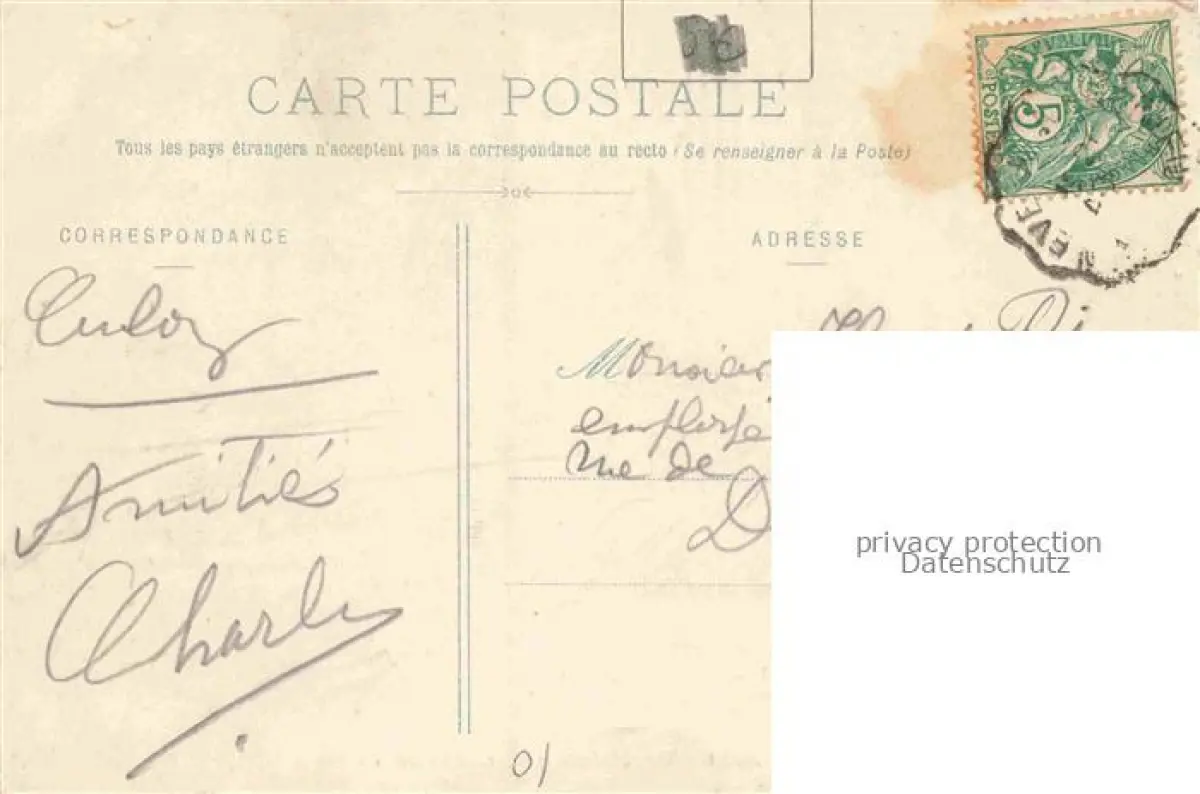 CARTE POSTALE
Tous les pays étrangers n'acceptent pas la correspondance au recto (Se renseigner à la Poste)
5
POSTES
CORRESPONDANCE
Culoz
Amitiés
Charles
ADRESSE
Monsieur
employé
rue de
D
privacy protection
Datenschutz
01